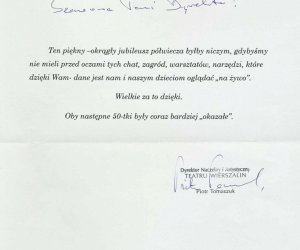 Szanowna Pani Dyrektor!
Ten piękny –okrągły jubileusz półwiecza byłby niczym, gdybyśmy
nie mieli przed oczami tych chat, zagród, warsztatów, narzędzi, które
dzięki Wam- dane jest nam i naszym dzieciom oglądać „na żywo".
Wielkie za to dzięki.
Oby następne 50-tki były coraz bardziej „okazałe".
Dyrektor Naczelny i Artystyczny
TEATRU WIERSZALIN
Piotr Tomaszuk